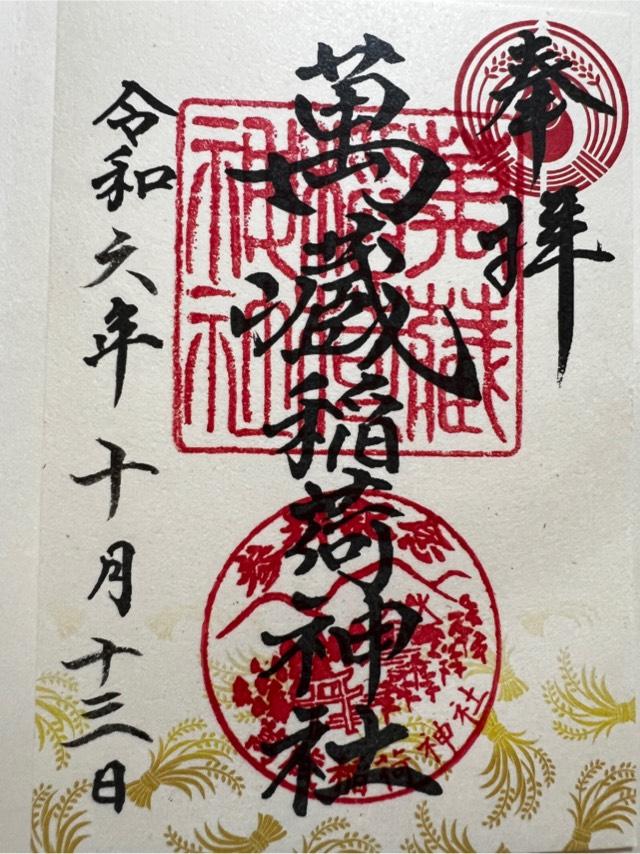 奉拝
萬蔵稲荷神社
萬藏稲荷神社
稲荷神社
令和六年十月十三日